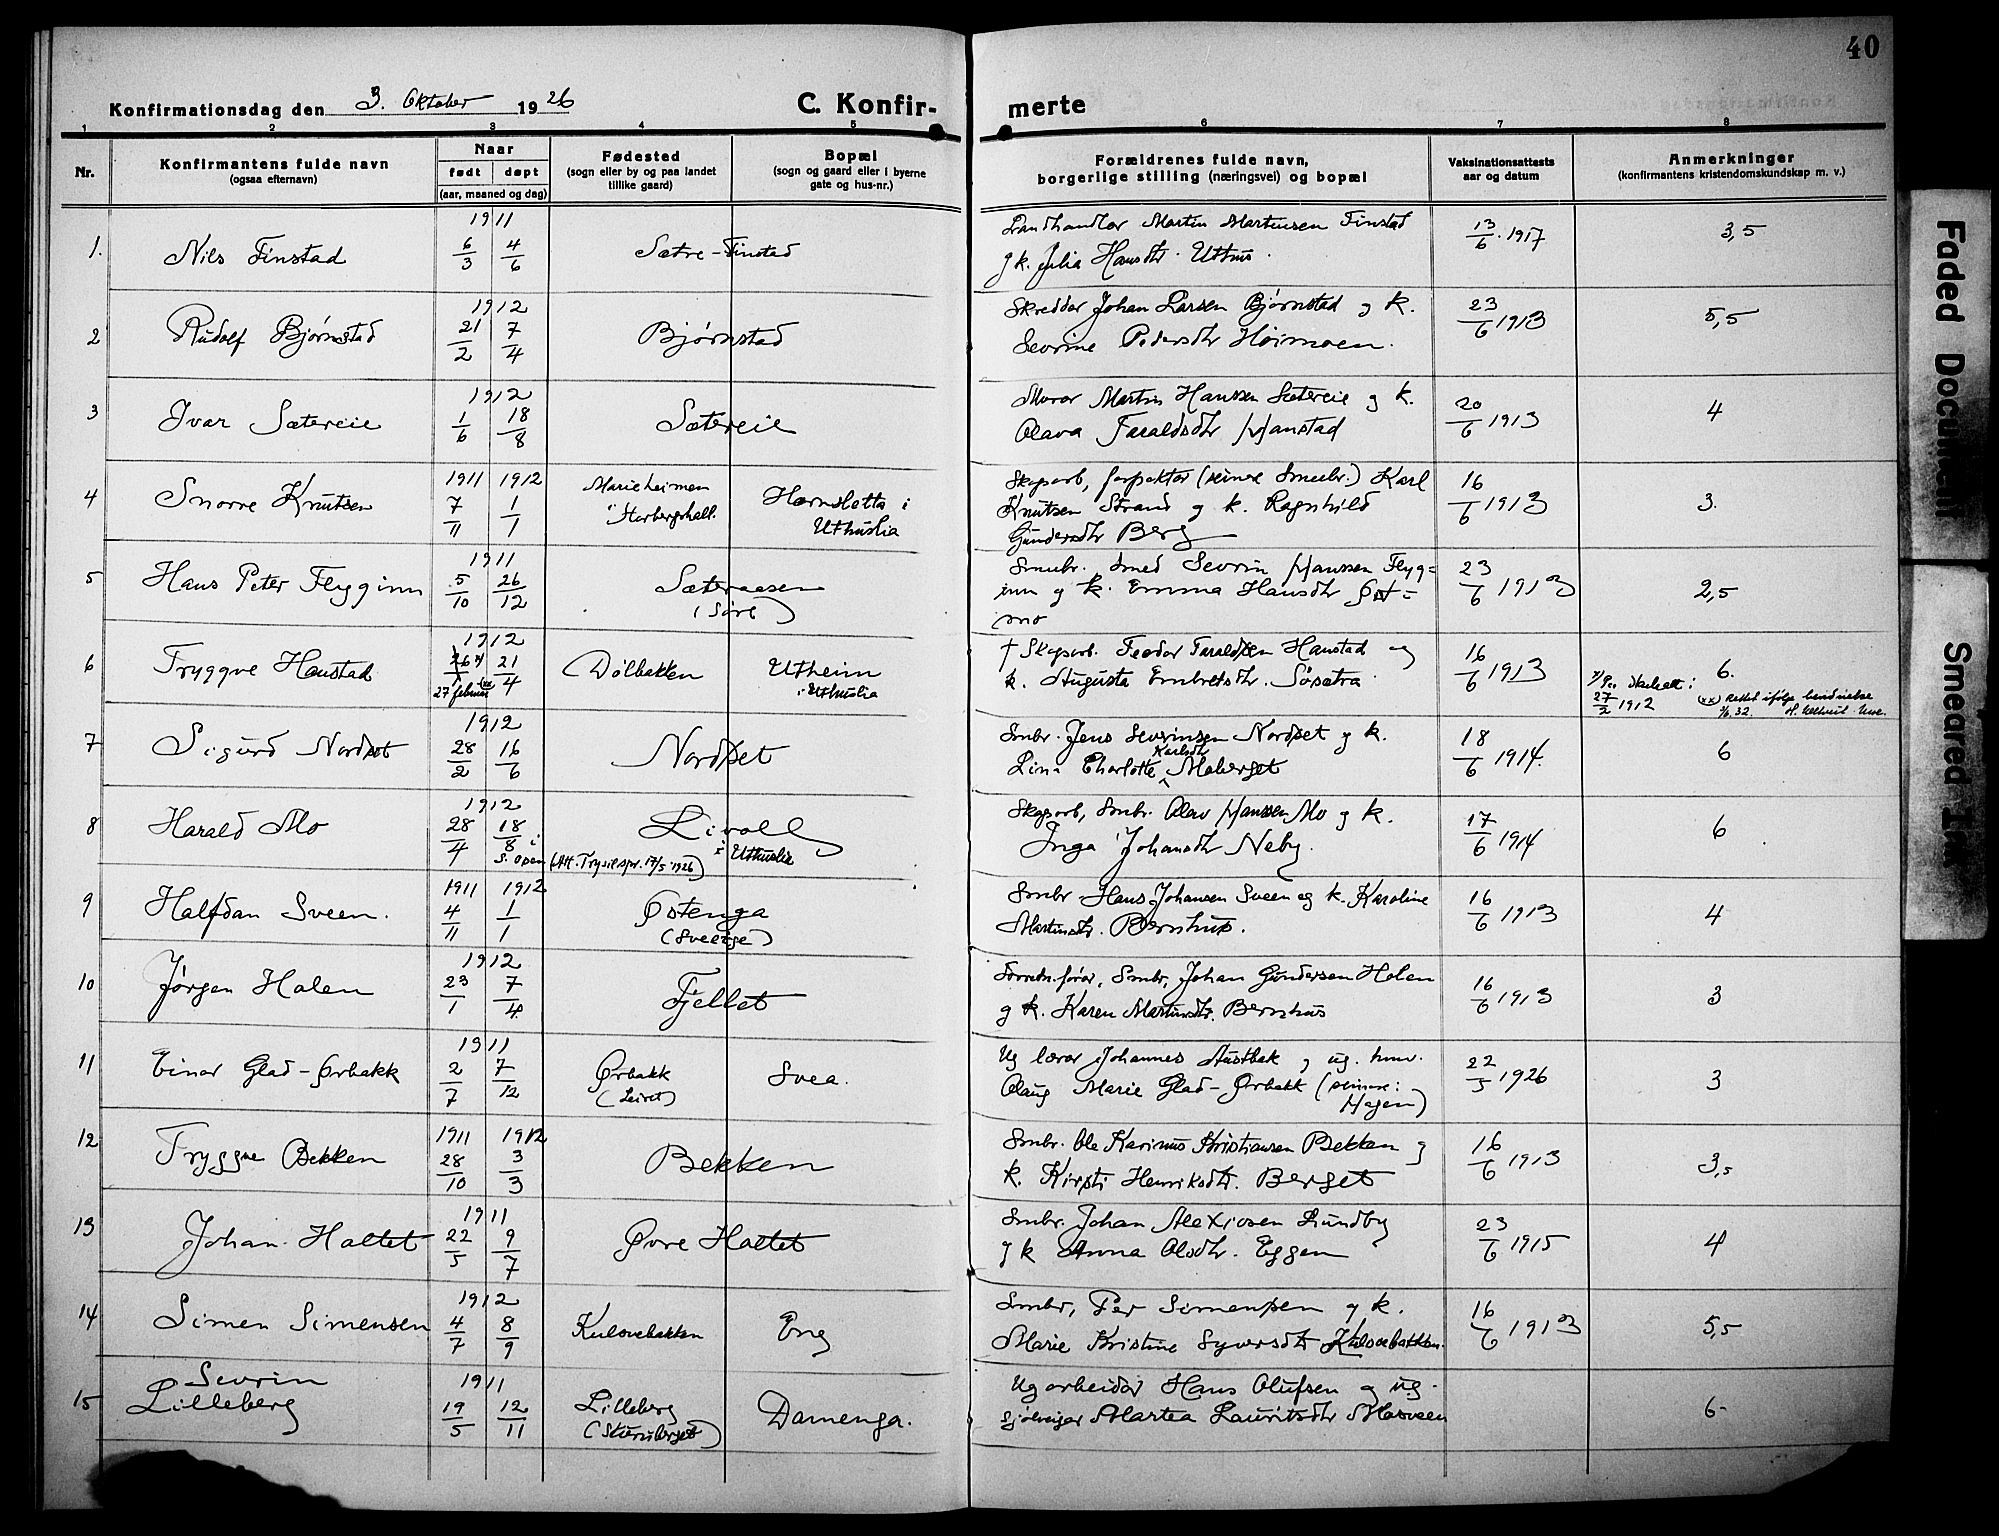 40
Konfirmationsdag den 3. Oktober 1926
C. Konfir-
merte
1
2
3
4
5
6
7
8
Nr.
Konfirmantens fulde navn
(ogsaa efternavn)
Naar
født døpt
(aar, maaned og dag)
Fødested
(sogn eller by og paa landet
tillike gaard)
Bopæl
(sogn og gaard eller i byerne
gate og hus-nr.)
Forældrenes fulde navn,
borgerlige stilling (næringsvei) og bopæl
Vaksinationsattests
aar og datum
Anmerkninger
(konfirmantens kristendomskundskap m. v.)
1911
1. Nils Finstad 6/3 4/6 Sætre-Finstad
Landhandler Martin Martinsen Finstad
g k. Julia Hansdtr. Uthus.
13/6. 1917
3,5
1912
2 Rudolf Bjørnstad 21/2 7/4 Bjørnstad
Skredder Johan Larsen Bjørnstad g k.
Sevrine Pedersdtr Hoimoen.
23/6 1913
5,5
1912
3 Ivar Sætereie 1/6 18/8 Sætereie
Murer Martin Hanssen Sætereie g k.
Olava Taraldsdtr Hanstad
20/6 1913
4
1911 1912
4 Snorre Knutsen 7/11 1/1
Marieheimen
i
Hornsletta i
Uthuslia
Skogsarb, forpakter (seinere Smubr.) Karl
Knutsen Strand g k. Ragnhild
Gundersdtr Berg
16/6 1913
3.
1911
5 Hans Peter Flyginn 5/10 26/12 Sæteraasen
(Søre)
Smubr. Smed Sevrin Hanssen Flyg=
inn g k. Emma Hansdtr Øst=
mo
23/6 1913
2,5
1912
6 Tryggve Hanstad 21/4 Dølbakken
27 februar (xx
Utheim
i Uthuslia
† Skogsarb. Feodor Taraldsen Hanstad og
k. Augusta Embretsdtr. Søsætra
16/6 1913
6.
27/2 1912
(xx) Rettet ifølge
1912
7 Sigurd Nordset 28/2 16/6 Nordset
Smbr. Jens Sevrinsen Nordset g k.
Karlsdtr
Lina Charlotte Moberget
18/6 1914.
6
1912
8 Harald Mo 28/4 18/8 i Livoll
S. Osen (Att. Trysil spr. 17/5 1926)
i Uthuslia
Skogsarb, Smbr. Olav Hanssen Mo g k.
Inga Johansdtr Neby.
17/6 1914
6
1911 1912
9 Halfdan Sveen. 4/11 1/1 Østenga
(Sverige)
Smbr Hans Johansen Sveen og k. Karoline
Martinsdtr. Bernhus.
16/6 1913
4
1912
10 Jørgen Holen 23/1 7/4 Fjellet
Smbr, Johan Gundersen Holen
g k. Karen Martinsdtr. Bernhus
16/6 1913
3
1911
11 Einar Glad-Ørbakk 2/7 7/12 Ørbakk
(Leiret)
Svea.
Ug lærer Johannes Austbak g ug.
Olaug Marie Glad-Ørbakk (seinere:
Hagen)
22/5 1926
3
1911 1912
12 Tryggve Bekken 28/10 3/3 Bekken
Smbr. Ole Karinius Kristiansen Bekken g
k. Kirsti Henriksdtr. Berget
16/6 1913
3,5
1911
13 Johan Holtet 22/5 9/7 Øvre Holtet
Smbr. Johan Alexiosen Lundby
g k Anna Olsdtr. Eggen
23/6 1915
4
1912
14 Simen Simensen 4/7 8/9 Kulsvebakken
Eng
Smbr, Per Simensen g k.
Marie Kristine Syversdtr Kulsvebakken.
16/6 1913
5,5
1911
15 Sevrin
Lilleberg
19/5 12/11
Lilleberg
Damenga.
Ug arbeider Hans Olufsen g ug.
Martea Lauritsdtr Mosveen
6
Faded Document
Smeared Ink